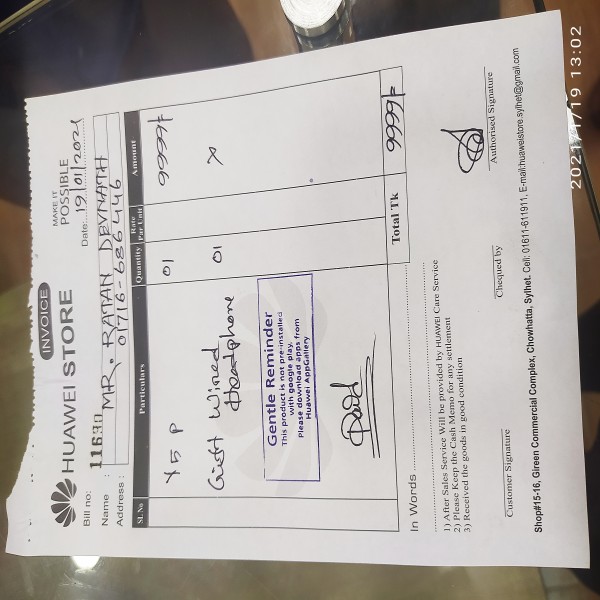 INVOICE
HUAWEI STORE
MAKE IT
POSSIBLE
Bill no: 11630
Date: 19/01/2021
Name : MR. RATAN DEVNATH
Address : 01716-686446
SL.No Particulars Quantity Rate Per Unit Amount
Y5P 01 9999/-
Gift Wired 01 X
Headphone
Gentle Reminder
This product is not pre-installed
with google play.
Please download apps from
Huawei AppGallery
Paid
Total Tk 9999/-
In Words
1) After Sales Service Will be provided by HUAWEI Care Service
2) Please Keep the Cash Memo for any settlement
3) Received the goods in good condition
Customer Signature Chequed by Authorised Signature
Shop#15-16, Gireen Commercial Complex, Chowhatta, Sylhet. Cell: 01611-611911, E-mail:huaweistore.sylhet@gmail.com
2021/1/19 13:02